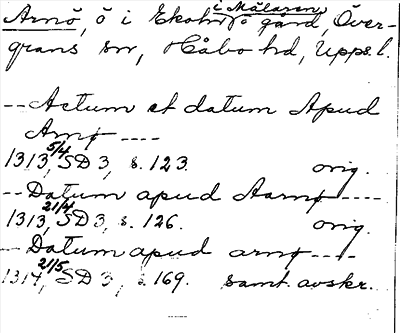 Arnö, ö i Ekoln i Mälaren, o gård, Över-
grans sn, Håbo hd, Upps. l.
-- Actum et datum Apud
Arnø ----
1313 5/4, SD 3, s. 123. orig.
-- Datum apud Aarnø ----
1313, 21/4 SD 3, s. 126. orig.
-- Datum apud arnø ----
1314, 21/5 SD 3, s. 169. samt. avskr.